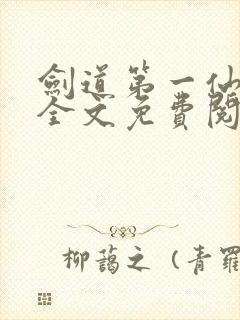 劍道第一仙
全文免費閱
柳蔼之（青羅